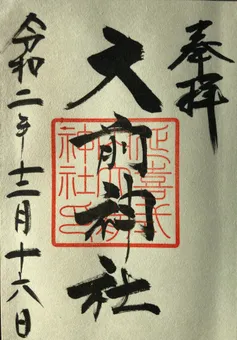 奉拝
大前神社
延喜式
神社印
令和二年十二月十六日